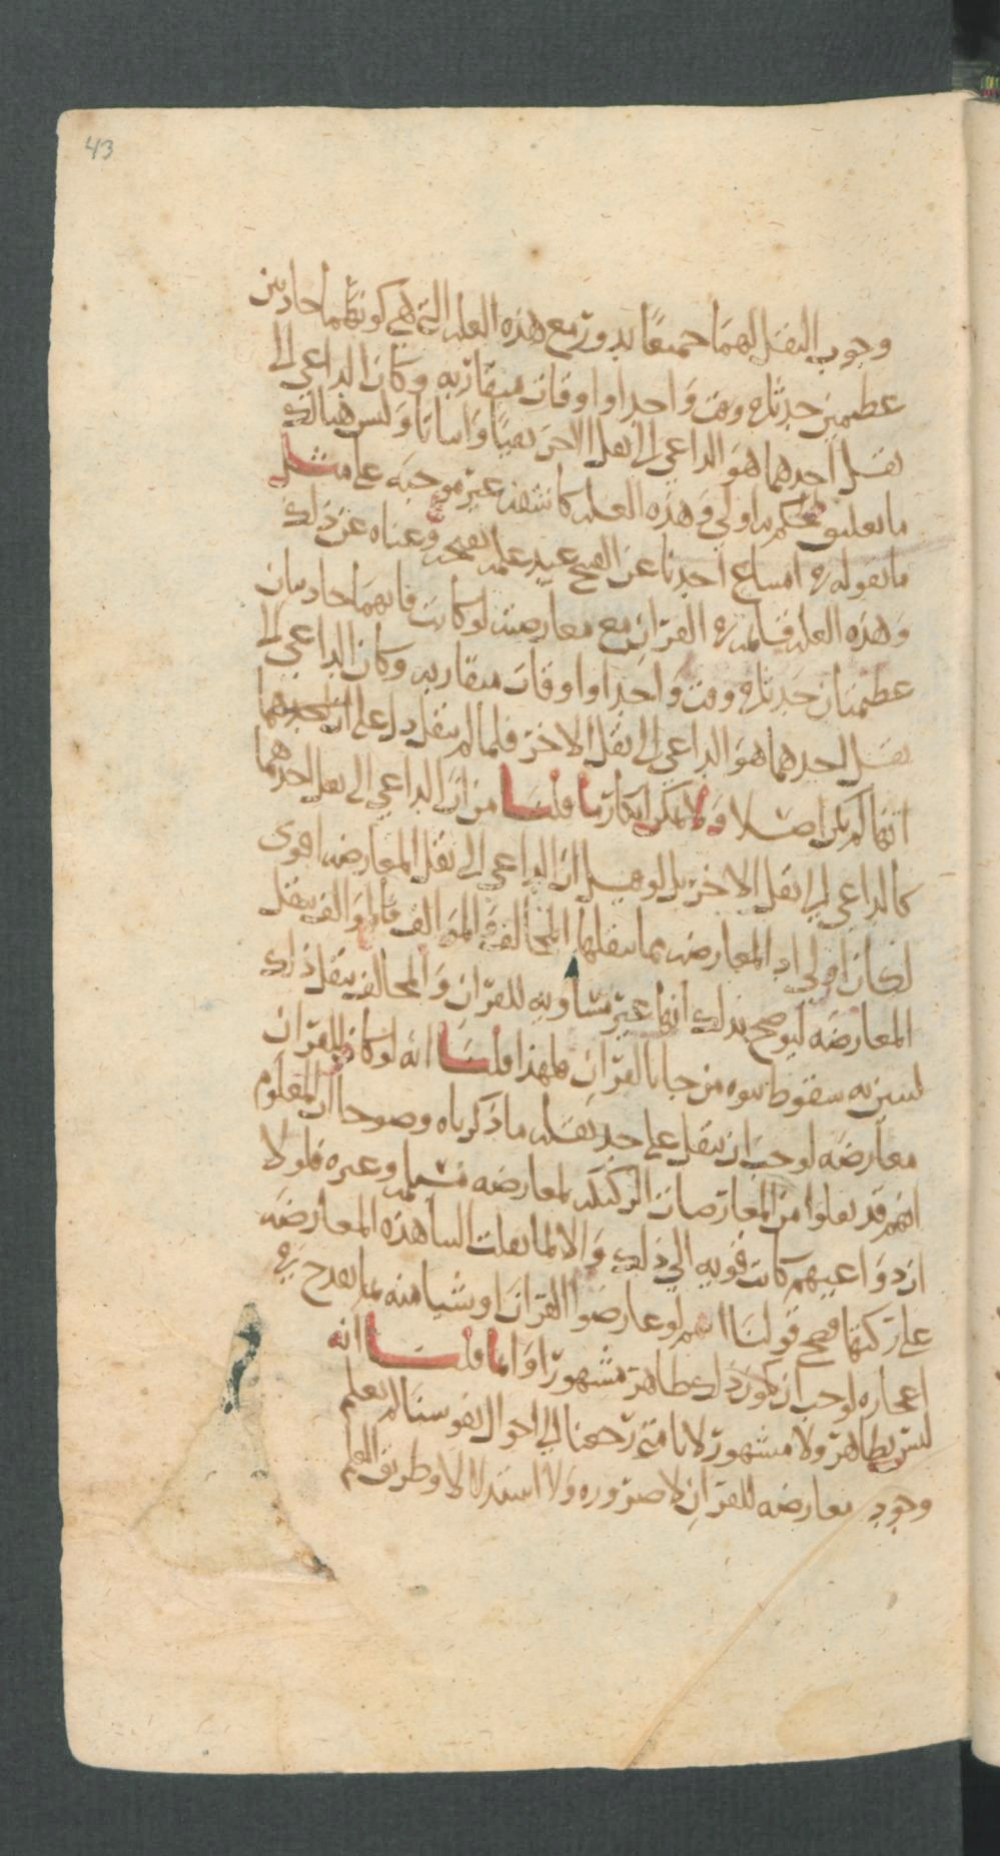 43
وجوب النقل لهما جميعًا يدور مع هذه العله التي هي كونهما حادثين
عظيمين حدثا في وقت واحد او اوقات متقاربه وكان الداعي الى
نقل احدهما هو الداعي الى نقل الاخر نفيًا واثباتا وليس هناك
ما تعليق الحكم به اولى وهذه العله كاشفه غير موجبه على مثل
ما نقوله في امتناع احدنا عن القبح عند علمه بقبحه وغناه عن ذلك
وهذه العله قائمه في القران مع معارضته لو كانت فانهما حادثان
عظيمان حدثا في وقت واحد او اوقات متقاربه وكان الداعي الى
نقل احدهما هو الداعي الى نقل الاخر فلما لم تنقل دل على
انها لم تكن اصلا ولا يمكن انكار ما قلنا من ان الداعي الى نقل احدهما
كالداعي الى نقل الاخر بل لو قيل ان الداعي الى نقل المعارضه اقوى
لكان اولى اذ المعارضه مما ينقلها المخالف والموالف فالموالف ينقل
المعارضه ليوضح بذلك انها غير مساويه للقران والمخالف ينقل ذلك
ليبين به سقوط نبوه من جا بالقران فلهذا قلنا انه لو كان للقران
معارضه لوجب ان تنقل على حد نقله ما ذكرناه وضوحا ان المعلوم
انهم قد نقلوا من المعارضات الركيكه لمعارضه مسيلمه وغيره فلولا
ان دواعيهم كانت قويه الى ذلك والا لما نقلت الينا هذه المعارضه
على ركتها فصح قولنا انهم لو عارضوا القران او شيا منه بما يقدح في
اعجازه لوجب ان يكون ذلك ظاهرا مشهورا واما قلنا انه
ليس بظاهر ولا مشهور لانا متى رجعنا الى احوال نفوسنا لم نعلم
وجود معارضه للقران لا ضروره ولا استدلالا وطريق العلم